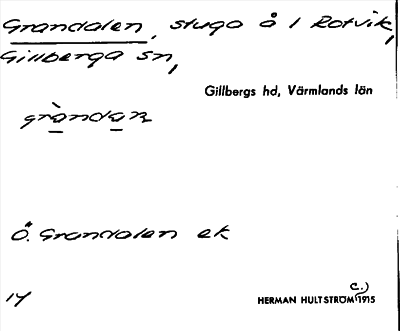 Grandalen, stuga å 1 Rotvik,
Gillberga sn,
Gillbergs hd, Värmlands län
gràndan
Ö. Grandalen ek
14
HERMAN HULTSTRÖM 1915
c.)